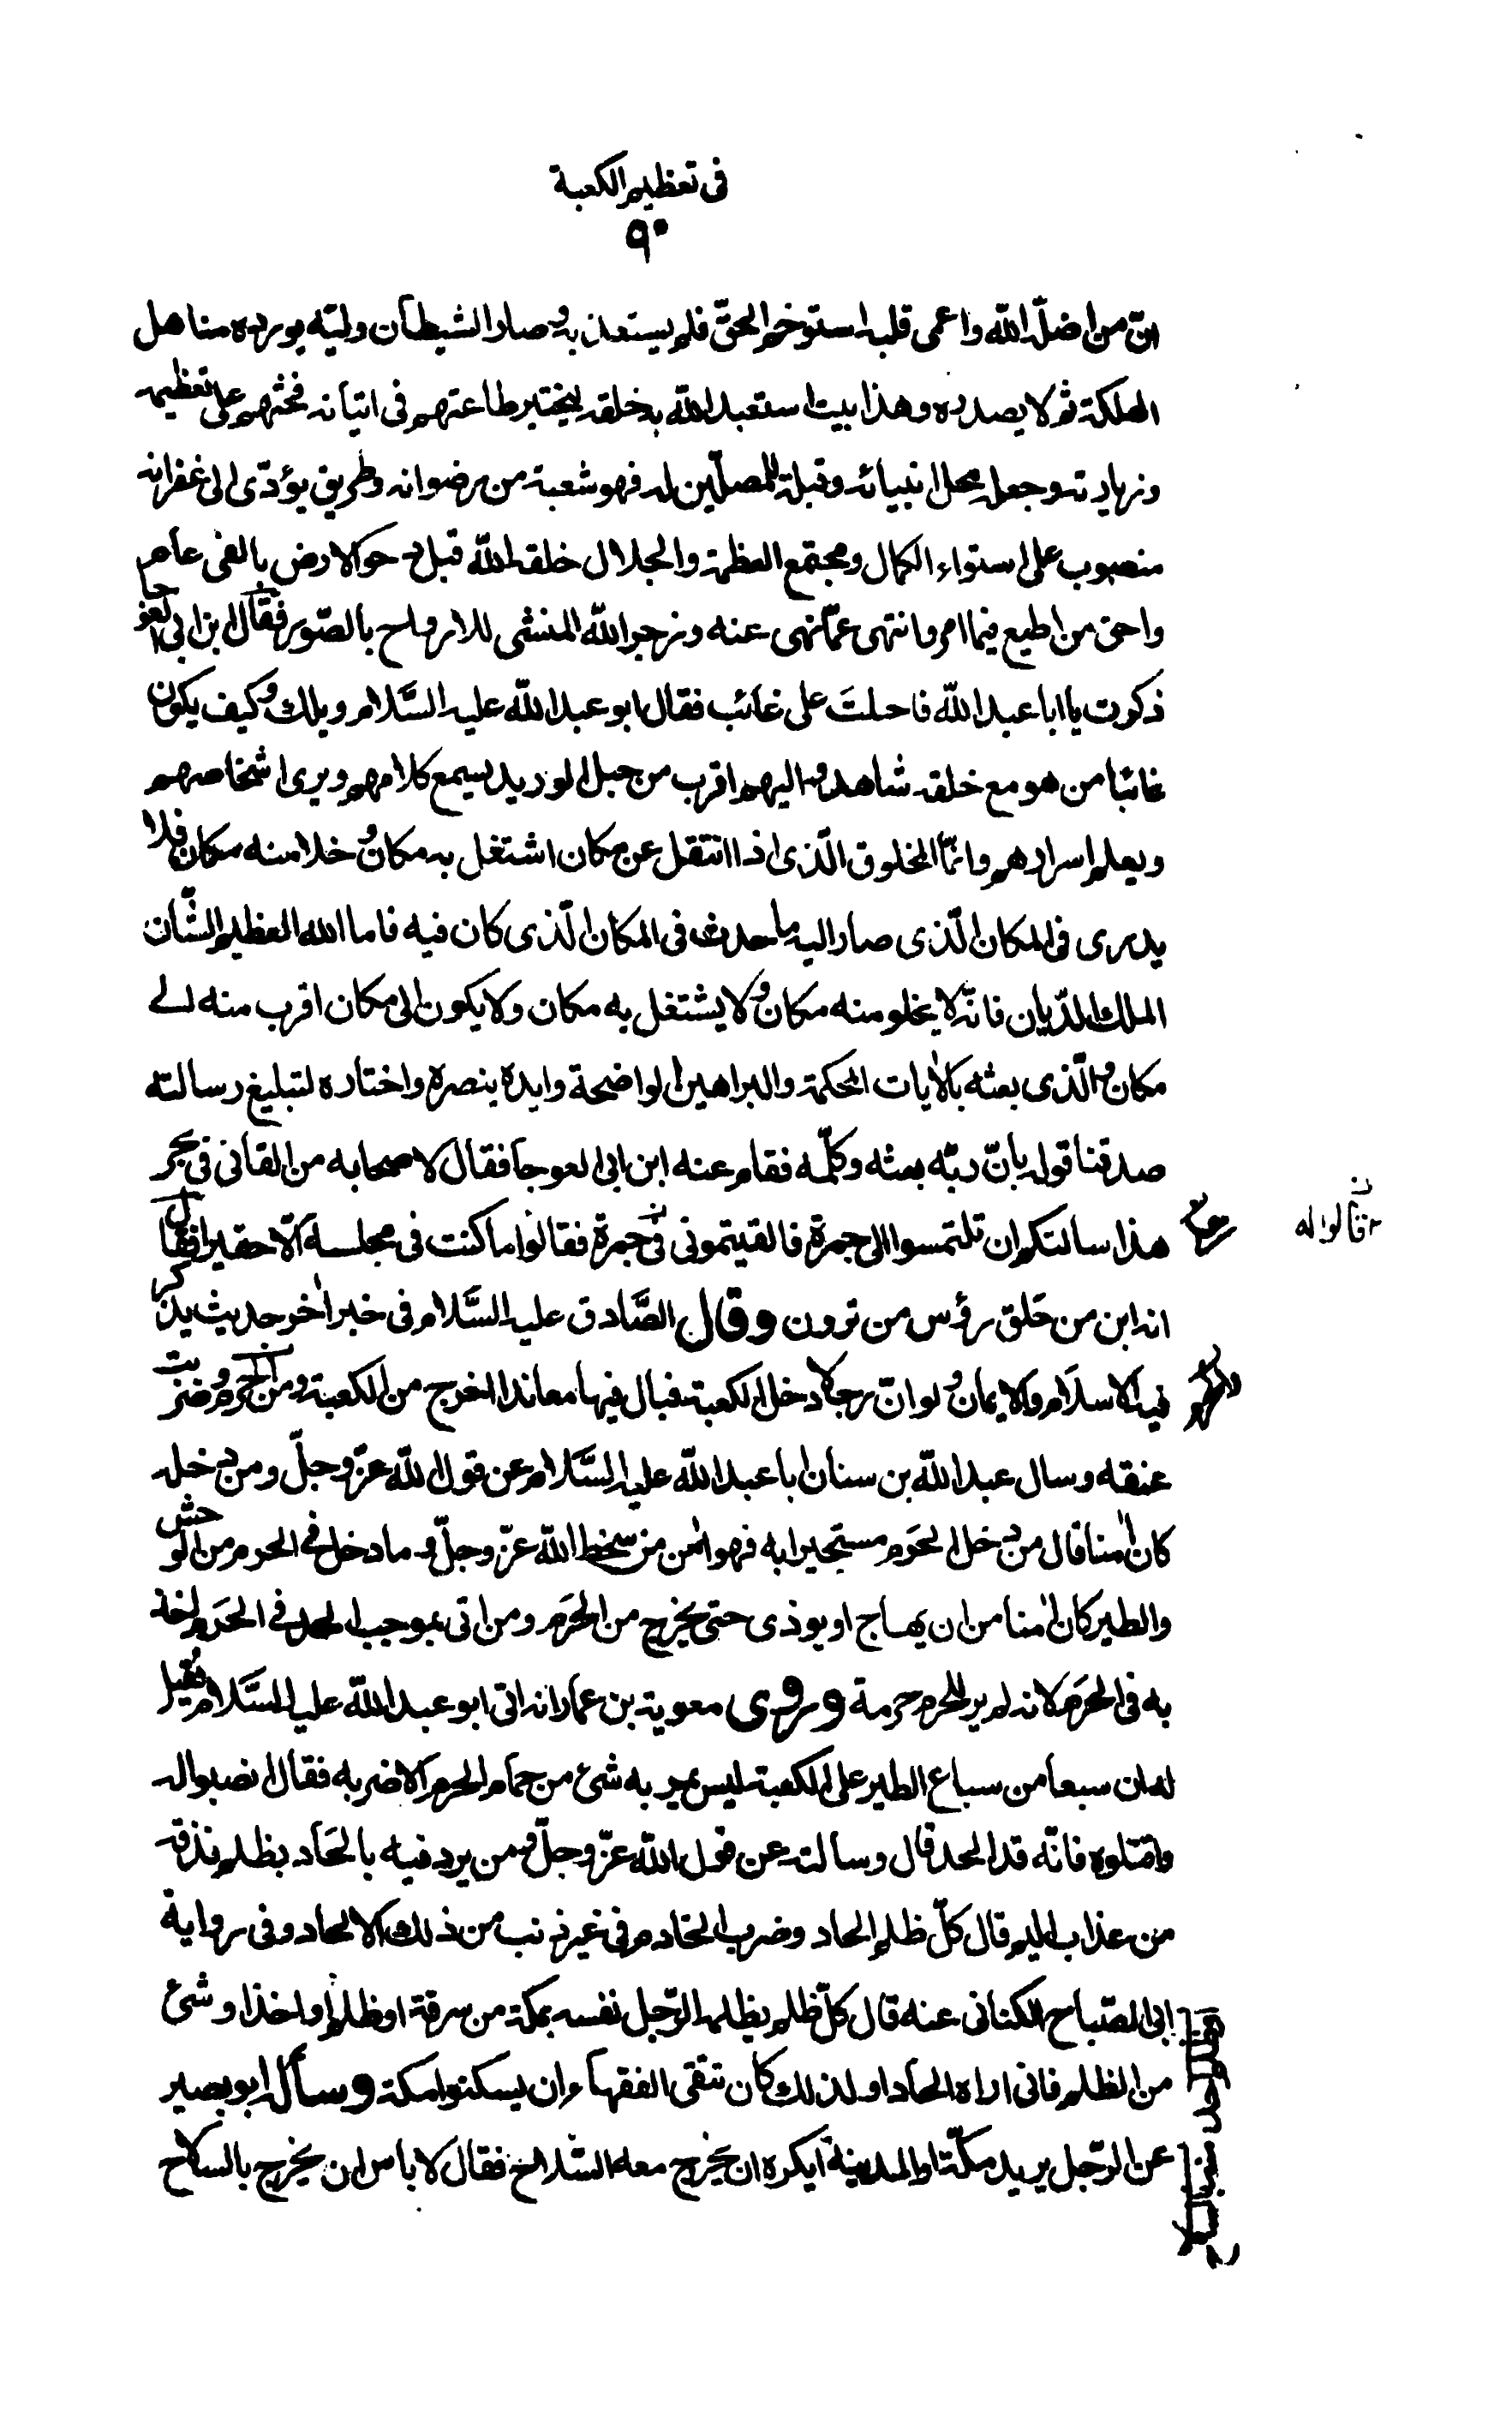 فى تعظيم الكعبة
٩٠
انّ من اضلّه اللّه واعمى قلبه استوخم الحقّ فلم يستعذ به وصار الشيطان وليّه يورده مناهل
الهلكة ثم لا يصدره وهذا بيت استعبد اللّه به خلقه ليختبر طاعتهم فى اتيانه فحثهم على تعظيمه
وزيارته وجعله محل انبيائه وقبلة للمصلّين له فهو شعبة من رضوانه وطريق يؤدّى الى غفرانه
منصوب على استواء الكمال ومجتمع العظمة والجلال خلقه اللّه قبل دحو الارض بالفى عام
واحق من اطيع فيما امر وانتهى عمّا نهى عنه وزجر اللّه المنشى للارواح بالصّور فقال ابن ابى العوجا
ذكرت يا ابا عبد اللّه فاحلتَ على غائب فقال ابو عبد اللّه عليه السَّلام ويلك وكيف يكون
غائبا من هو مع خلقه شاهد واليهم اقرب من حبل الوريد يسمع كلامهم ويرى اشخاصهم
ويعلم اسرارهم وانّما المخلوق الّذى اذا انتقل عن مكان اشتغل به مكان وخلا منه مكان فلا
يدرى فى المكان الّذى صار اليه ما حدث فى المكان الّذى كان فيه فاما الله العظيم الشّأن
الملك الدّيان فانّه لا يخلو منه مكان ولا يشتغل به مكان ولا يكون الى مكان اقرب منه الى
مكان والّذى بعثه بالايات المحكمة والبراهين الواضحة وايده بنصره واختاره لتبليغ رسالته
صدقنا قوله بانّ ربّه بعثه وكلّمه فقام عنه ابن ابى العوجا فقال لاصحابه من القانى فى بحر
هذا سالتكم ان تلتمسوا الى جمرة فالقيتمونى فى جمرة فقالوا ما كنت فى مجلسه الّا حقيرا فقال
فقالوا له
انه ابن من حَلق رؤس من ترون وقال الصَّادق عليه السَّلام فى خبر اخر حديث يذكر
فيه الاسلام والايمان ولو انّ رجلا دخل الكعبة فبال فيها معاندا اخرج من الكعبة ومن الحرم وضربت
عنقه وسال عبد اللّه بن سنان ابا عبد اللّه عليه السَّلام عن قول اللّه عزّ وجلّ ومن دخله
كان امنا قال من دخل الحَرَم مستجيرا به فهو امن من سخط اللّه عزّ وجلّ وما دخل فى الحرم من الوحش
والطير كان امنا من ان يهاج او يوذى حتى يخرج من الحَرَم ومن اتى بموجب الحد فى الحَرَم اخذ
به فى الحَرَم لانه لم ير للحرم حرمة وروى معوية بن عمار انه اتى ابو عبد اللّه عليه السَّلام فقيل
له ان سبعا من سباع الطير على الكعبة ليس يمر به شئ من حمام الحرم الا ضربه فقال انصبوا له
واقتلوه فانّه قد الحد قال وسالته عن قول اللّه عزّ وجلّ ومن يرد فيه بالحَاد بظلم نذقه
من عذاب اليم قال كلّ ظلم الحاد وضرب الخادم فى غير ذنب من ذلك الالحاد وفى رواية
ابى الصّباح الكنانى عنه قال كلّ ظلم يظلمه الرّجل نفسه بمكة من سرقة او ظلم او اخذ او شئ
من الظلم فانى اراه الحادا ولذلك كان تتقى الفقهاء ان يسكنوا مكة وسأل ابو بصير
عن الرّجل يريد مكّة او المدينة ايكره ان يخرج معه السّلاح فقال لا باس ان يخرج بالسلاح